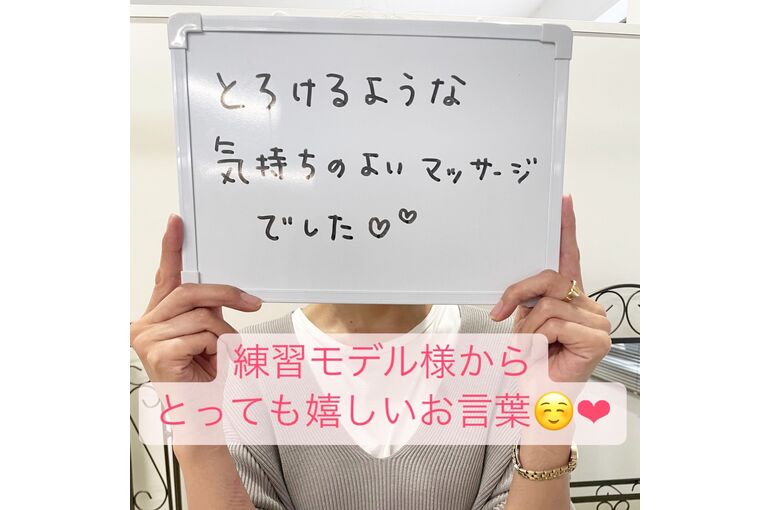 とろけるような
気持ちのよいマッサージ
でした♡♡
練習モデル様から
とっても嬉しいお言葉☺️❤